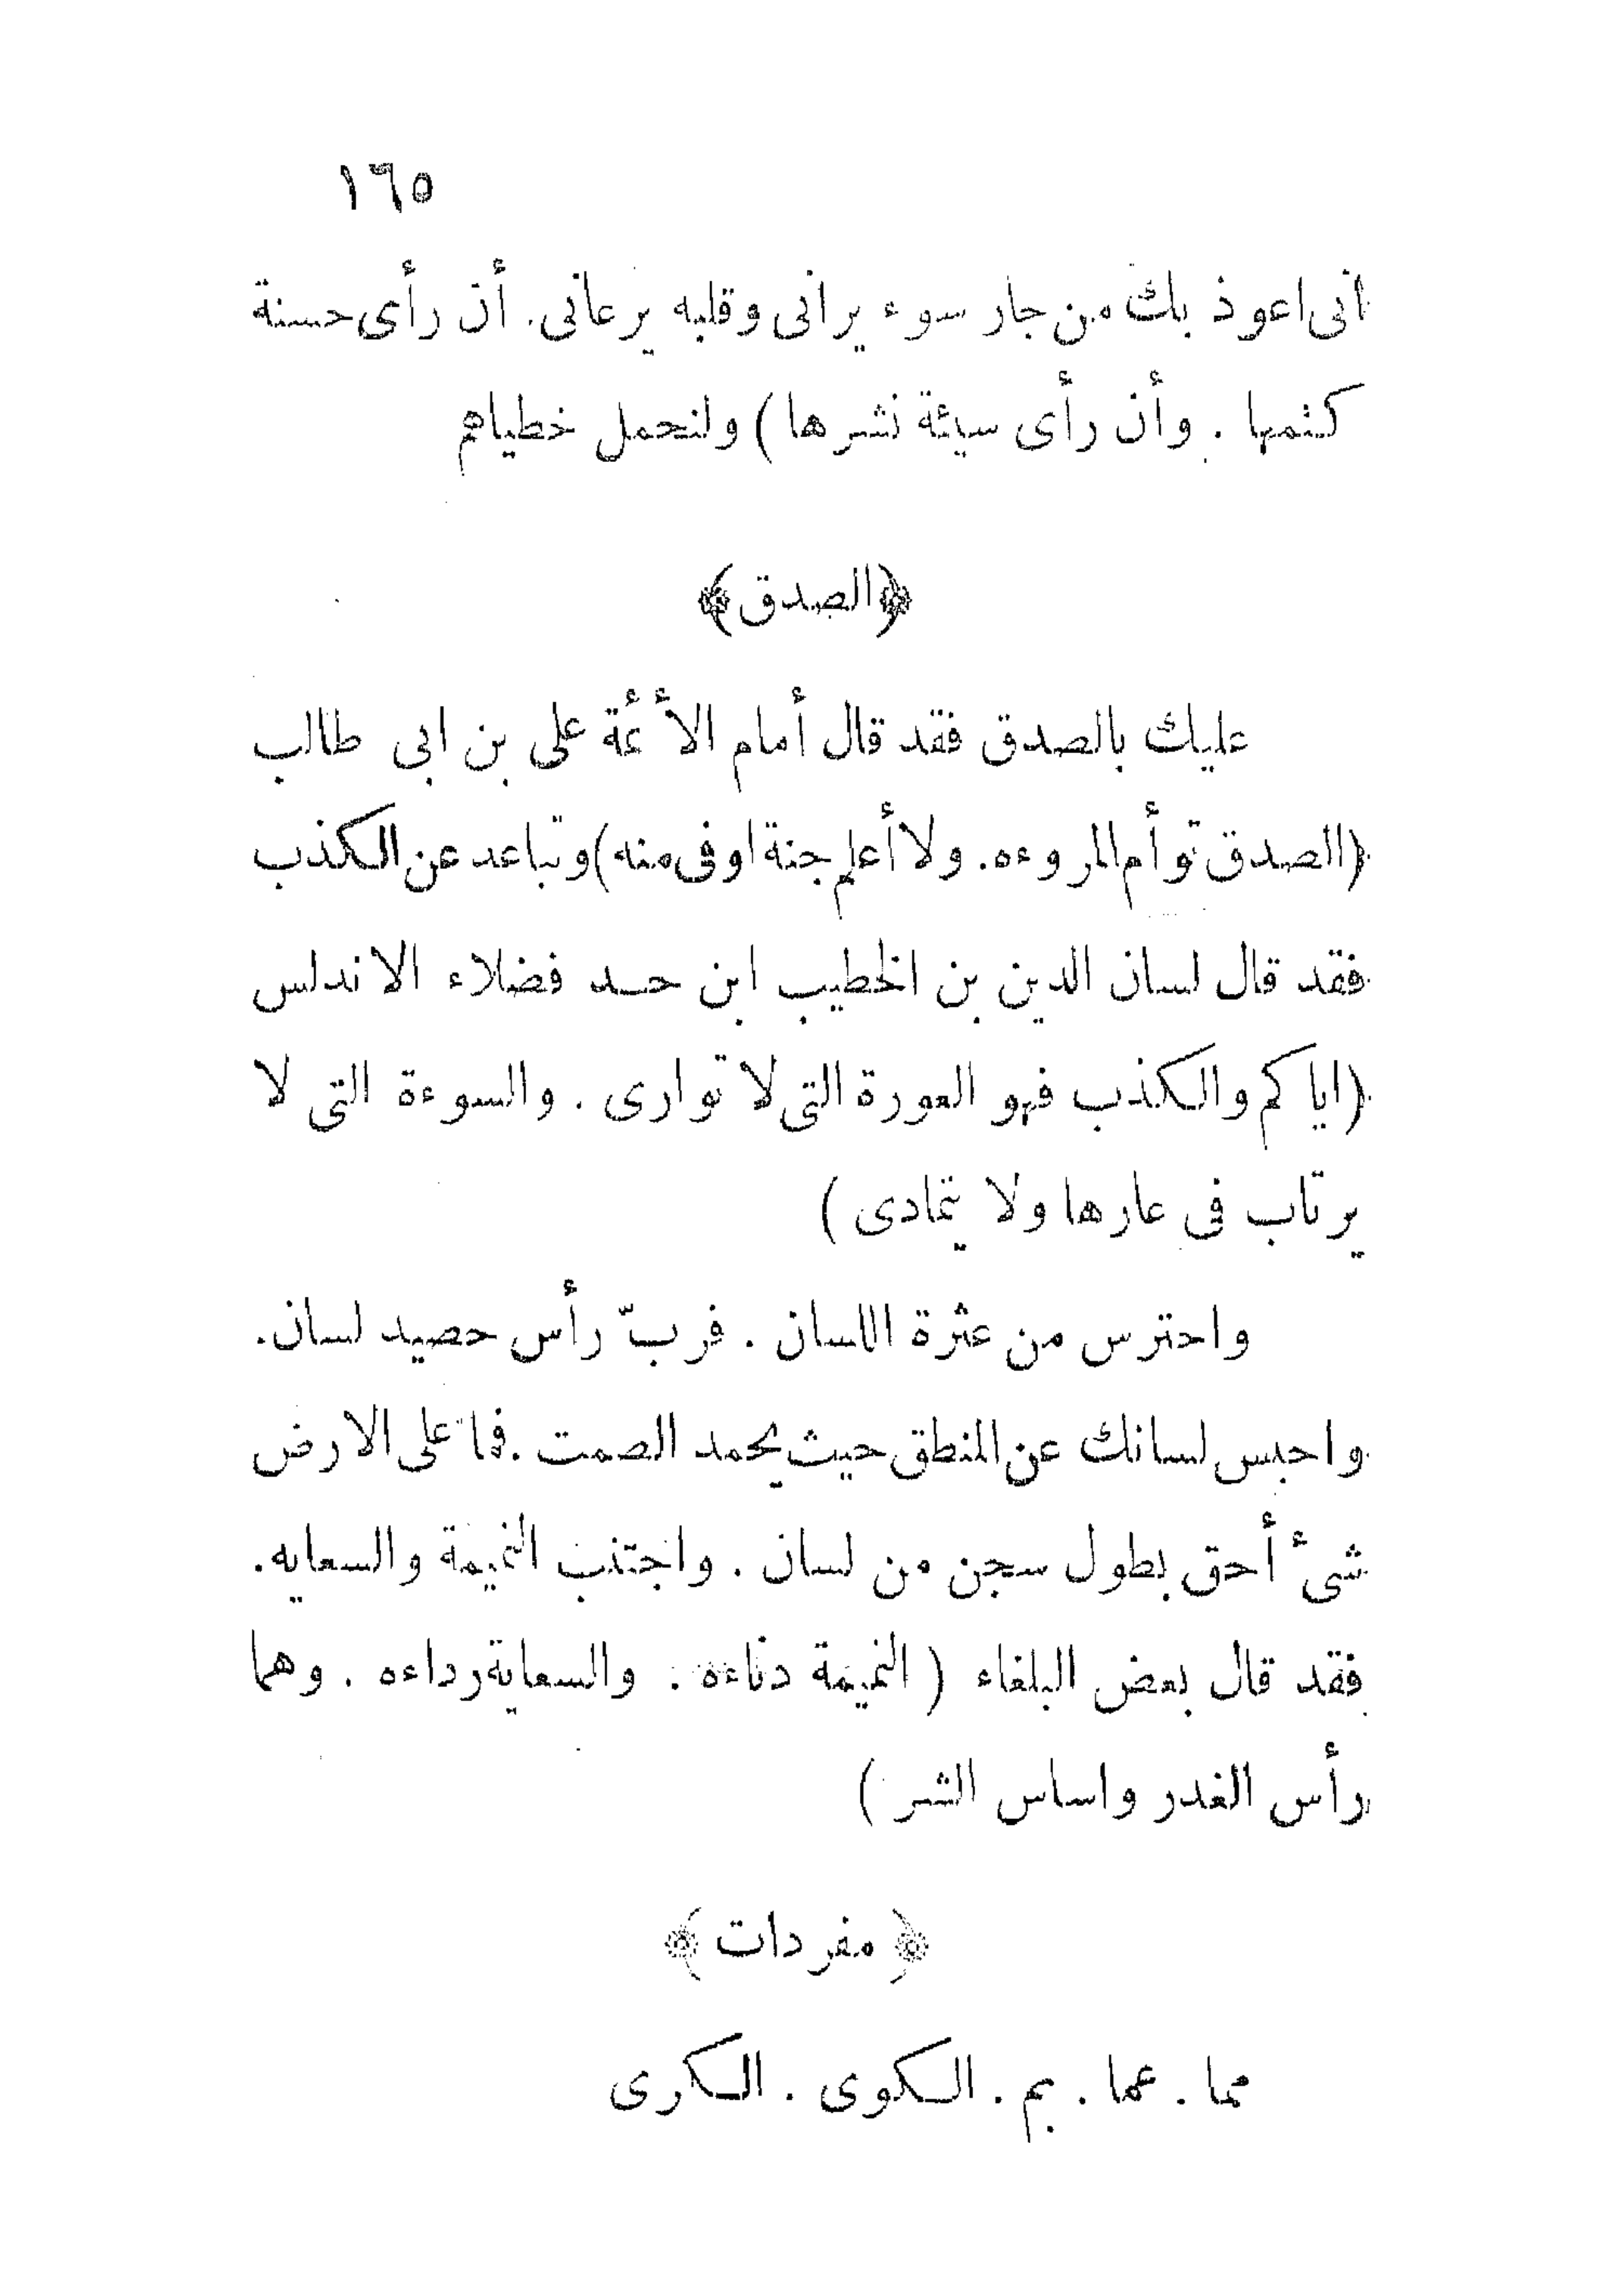 ١٦٥
انى اعوذ بك من جار سوء يرانى وقلبه يرعانى. أن رأى حسنة
كتمها . وأن رأى سيئة نشرها ) ولنحمل خطياهم
﴿الصدق﴾
عليك بالصدق فقد قال أمام الأئمة على بن ابى طالب
(الصدق توأم المروءه. ولا أعلم جنة اوفى منه) وتباعد عن الكذب
فقد قال لسان الدين بن الخطيب ابن حد فضلاء الاندلس
(ايا كم والكذب فهو العورة التى لا توارى . والسوءة التى لا
يرتاب فى عارها ولا يتمادى )
واحترس من عثرة اللسان . فربّ رأس حصيد لسان.
واحبس لسانك عن المنطق حيث يحمد الصمت .فما على الارض
شىء أحق بطول سجن من لسان . واجتنب النميمة والسعايه.
فقد قال بعض البلغاء ( النميمة دناءه . والسعاية رداءه . وهما
رأس الغدر واساس الشر )
﴿ مفردات ﴾
مما . عما . بم . الكوى . الكرى